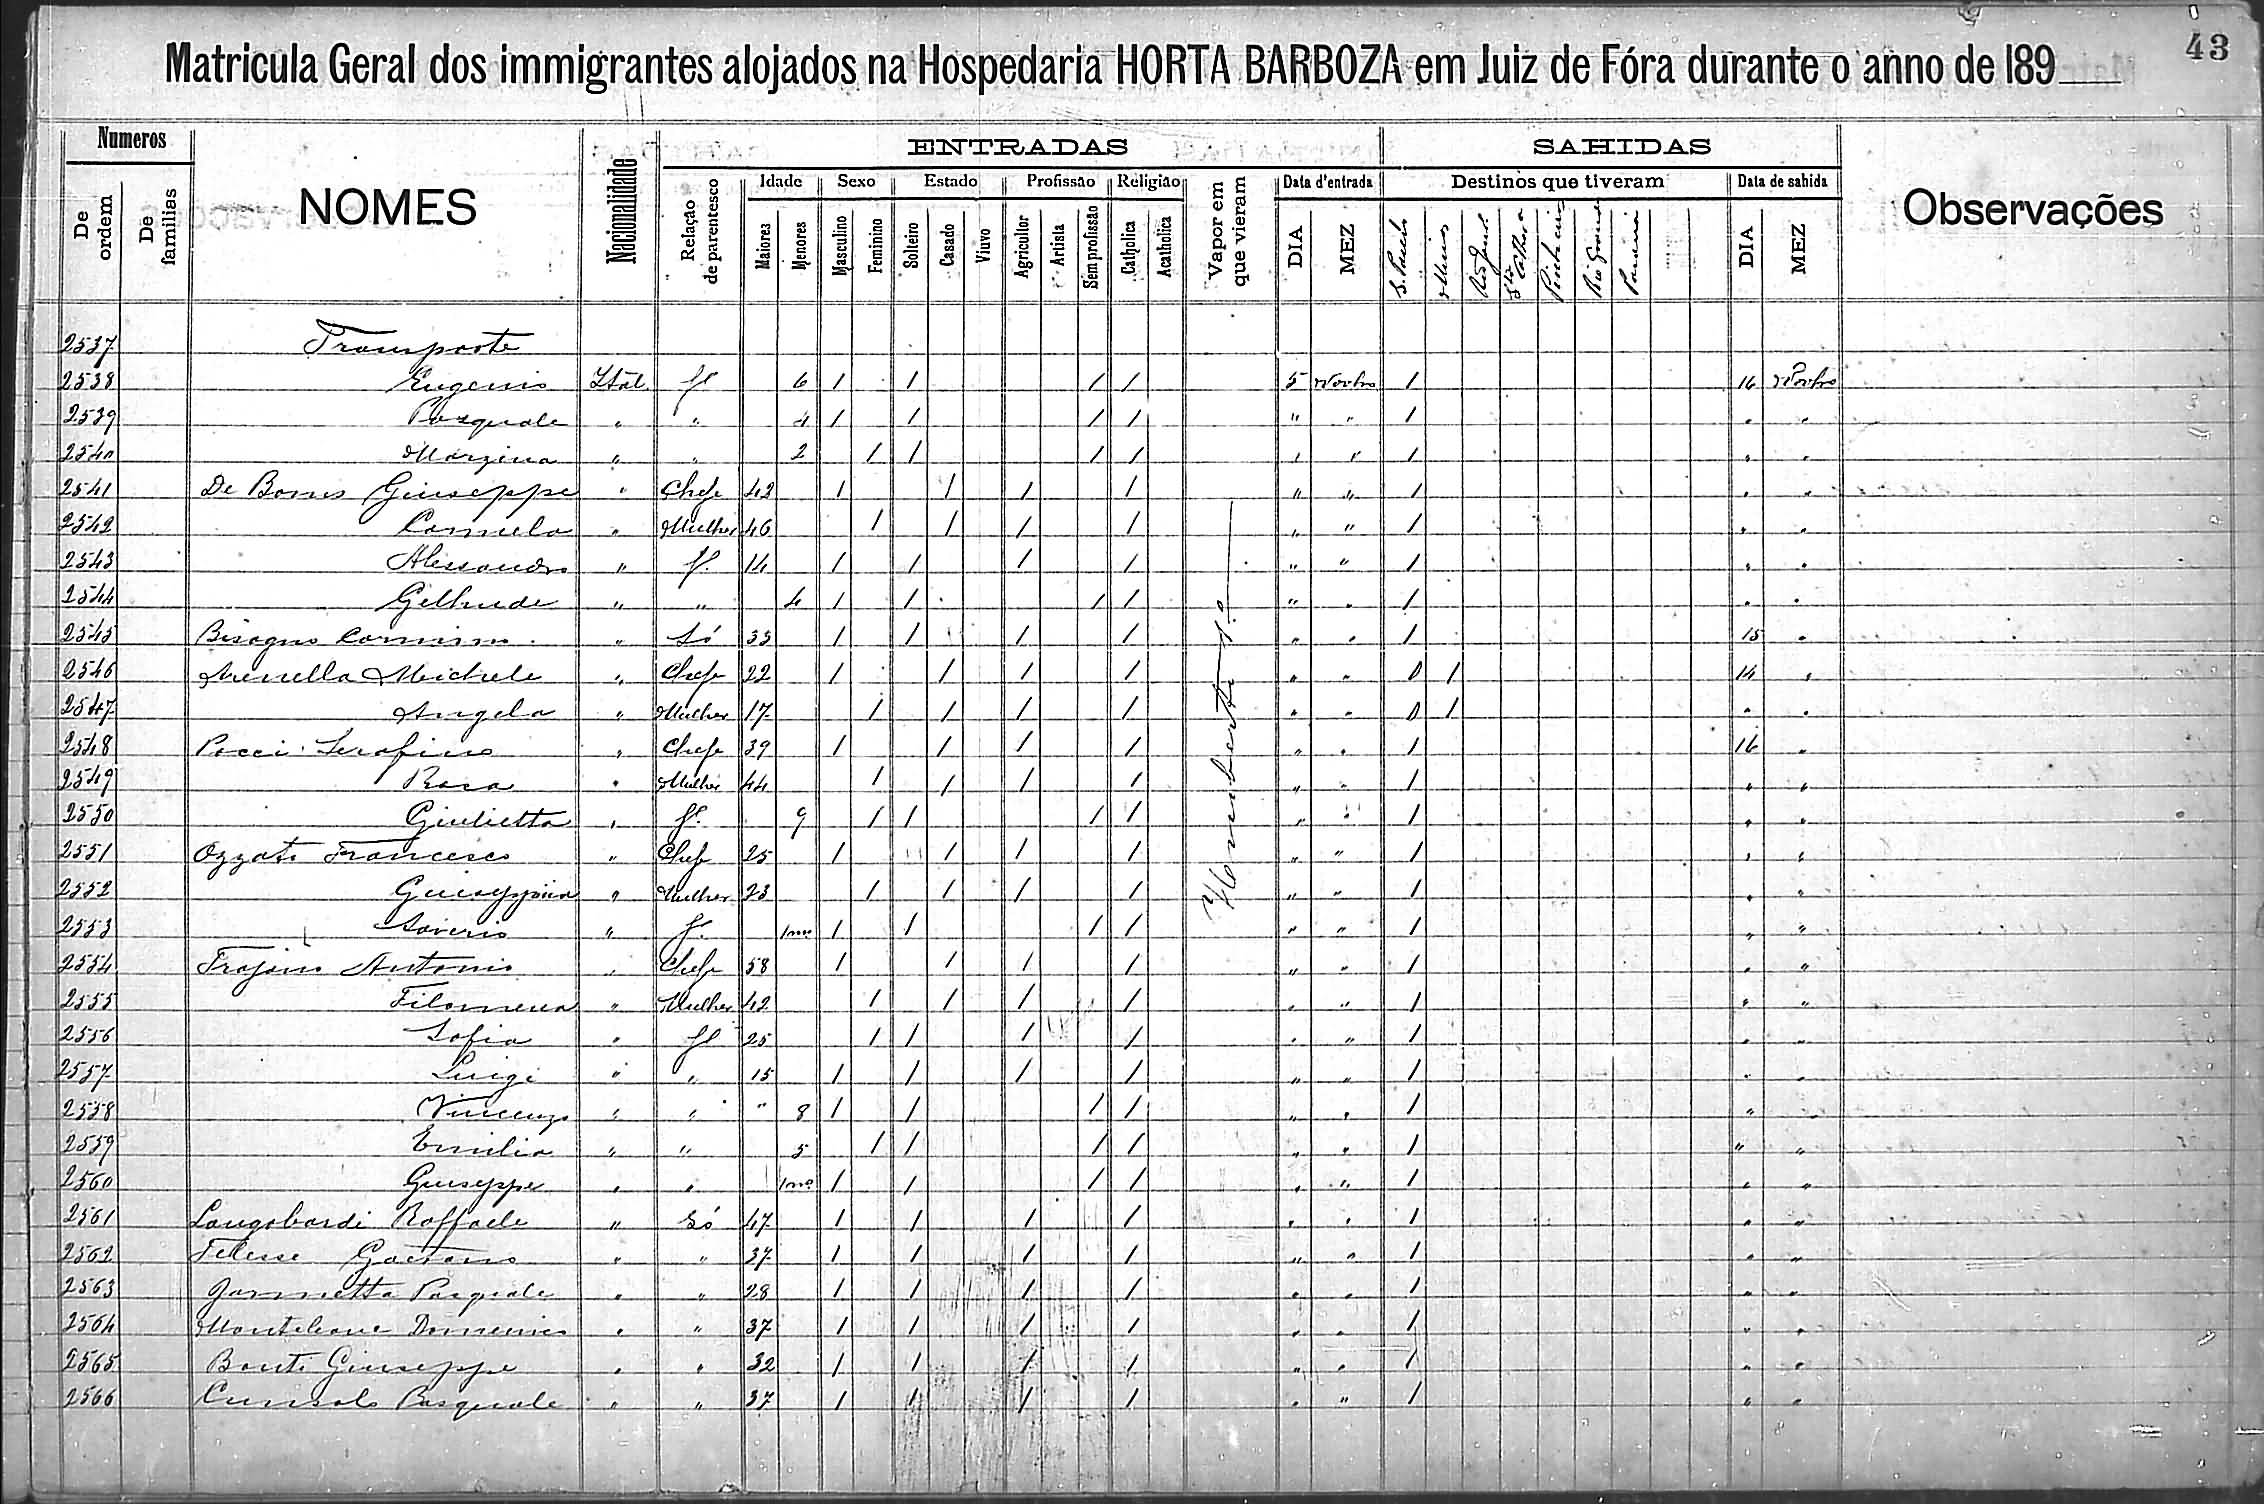 43
Matricula Geral dos immigrantes alojados na Hospedaria HORTA BARBOZA em Juiz de Fóra durante o anno de 189
Numeros ENTRADAS SAHIDAS
De ordem De familias NOMES Nacionalidade Relação de parentesco Idade Sexo Estado Profissão Religião Vapor em que vieram Data d'entrada Destinos que tiveram Data de sahida Observações
Maiores Menores Masculino Feminino Solteiro Casado Viuvo Agricultor Artista Sem profissão Catholica Acatholica DIA MEZ S. Paulo Minas DIA MEZ
2537 Transporte
2538 Eugenio Ital. f. 6 1 1 1 1 5 Novbro 1 16 Novbro
2539 Pasquale " " 4 1 1 1 1 " " 1 " "
2540 " " 2 1 1 1 1 " " 1 " "
2541 Giuseppe " Chefe 42 1 1 1 1 " " 1 " "
2542 Carmela " Mulher 46 1 1 1 1 " " 1 " "
2543 Alessandro " f. 14 1 1 1 1 " " 1 " "
2544 " " 4 1 1 1 1 " " 1 " "
2545 Bisogno " Só 35 1 1 1 1 " " 1 15 "
2546 Michele " Chefe 22 1 1 1 1 " " 1 14 "
2547 Angela " Mulher 17 1 1 1 1 " " 1 " "
2548 Pacci Serafino " Chefe 39 1 1 1 1 " " 1 16 "
2549 Rosa " Mulher 44 1 1 1 1 " " 1 " "
2550 Giulietta " f. 9 1 1 1 1 " " 1 " "
2551 Francesco " Chefe 25 1 1 1 1 " " 1 " "
2552 Giuseppina " Mulher 23 1 1 1 1 " " 1 " "
2553 Saverio " f. 1 1 1 1 " " 1 " "
2554 Antonio " Chefe 58 1 1 1 1 " " 1 " "
2555 Filomena " Mulher 42 1 1 1 1 " " 1 " "
2556 Sofia " f 25 1 1 1 1 " " 1 " "
2557 Luigi " " 15 1 1 1 1 " " 1 " "
2558 Vincenzo " " " 8 1 1 1 1 " " 1 " "
2559 Emilia " " 5 1 1 1 1 " " 1 " "
2560 Giuseppe " " 1 1 1 1 " " 1 " "
2561 Longobardi Raffaele " Só 47 1 1 1 1 " " 1 " "
2562 Telesse Gaetano " " 37 1 1 1 1 " " 1 " "
2563 Pasquale " " 28 1 1 1 1 " " 1 " "
2564 Monteleone Domenico " " 37 1 1 1 1 " " 1 " "
2565 Bonti Giuseppe " " 32 1 1 1 1 " " 1 " "
2566 Cunsolo Pasquale " " 37 1 1 1 1 " " 1 " "